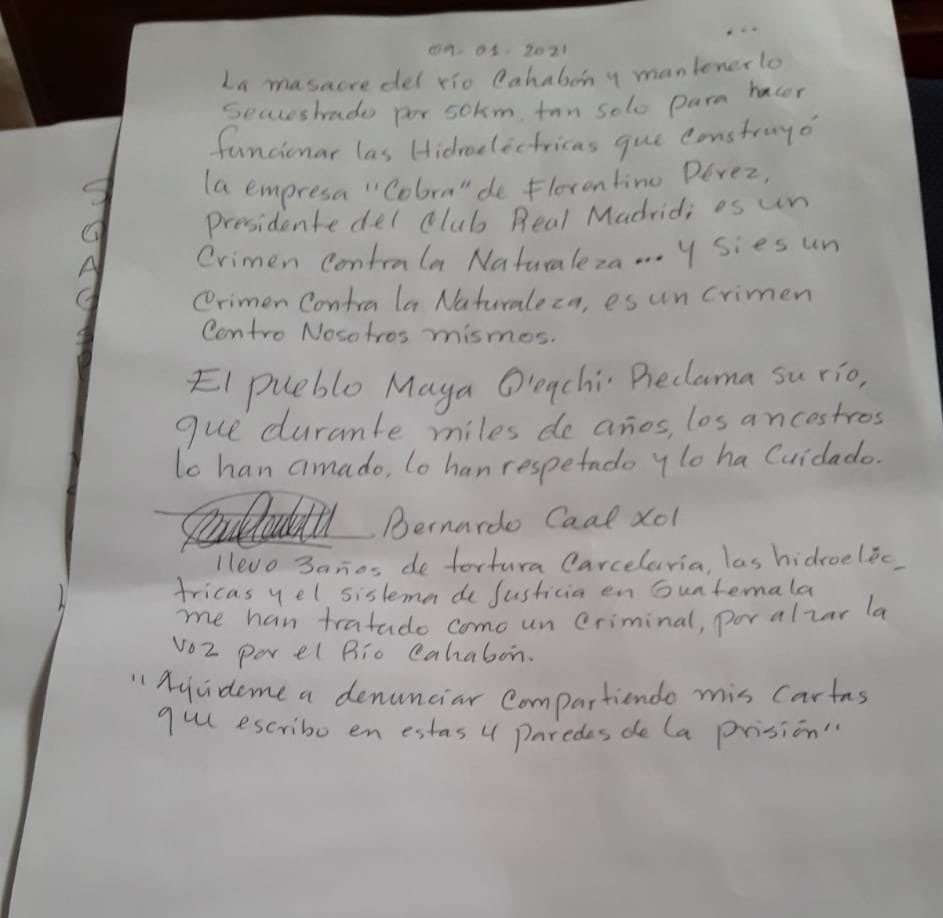 ...
09. 01. 2021
La masacre del río Cahabón y mantenerlo
Secuestrado por 50km, tan solo para hacer
funcionar las Hidroeléctricas que construyó
la empresa "Cobra" de Florentino Pérez,
presidente del Club Real Madrid; es un
Crimen Contra la Naturaleza... y si es un
Crimen Contra la Naturaleza, es un crimen
Contro Nosotros mismos.
El pueblo Maya Q'eqchi' Reclama su río,
que durante miles de años, los ancestros
lo han amado, lo han respetado y lo ha Cuidado.
Bernardo Caal Xol
llevo 3 años de tortura Carcelaria, las hidroeléc-
tricas y el sistema de Justicia en Guatemala
me han tratado como un Criminal, por alzar la
voz por el Río Cahabón.
"Ayúdeme a denunciar Compartiendo mis Cartas
que escribo en estas 4 Paredes de la prisión"